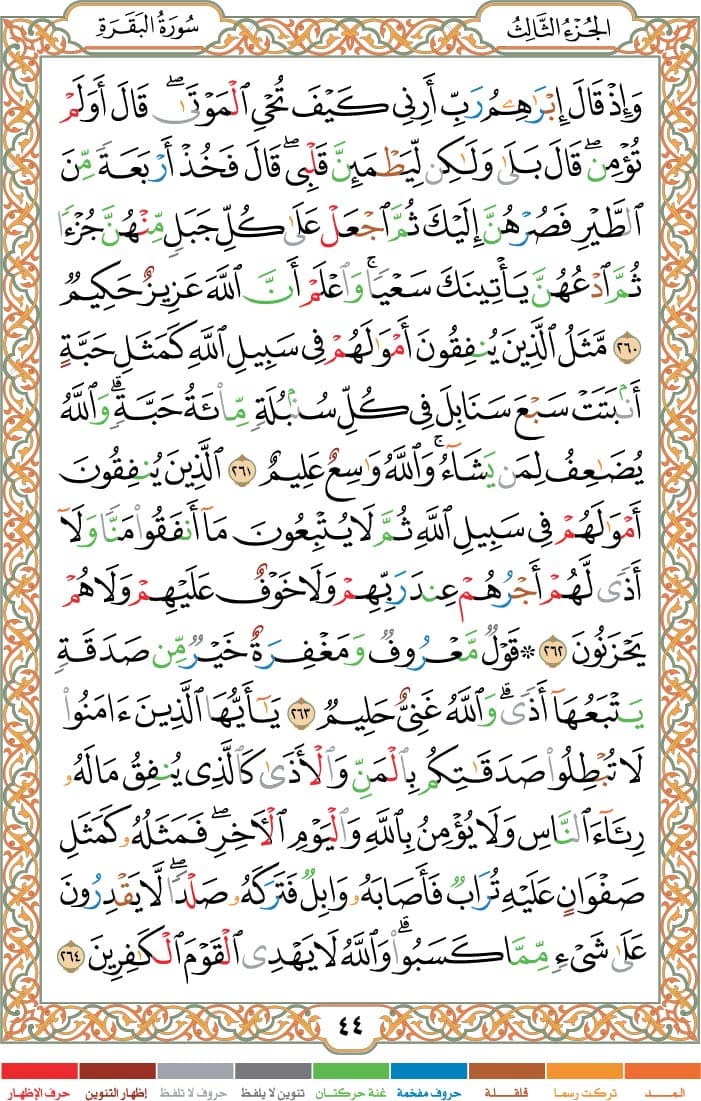 الجزء الثالث
سورة البقرة
وَإِذْ قَالَ إِبْرَٰهِـۧمُ رَبِّ أَرِنِى كَيْفَ تُحْىِ ٱلْمَوْتَىٰ ۖ قَالَ أَوَلَمْ
تُؤْمِن ۖ قَالَ بَلَىٰ وَلَـٰكِن لِّيَطْمَئِنَّ قَلْبِى ۖ قَالَ فَخُذْ أَرْبَعَةً مِّنَ
ٱلطَّيْرِ فَصُرْهُنَّ إِلَيْكَ ثُمَّ ٱجْعَلْ عَلَىٰ كُلِّ جَبَلٍ مِّنْهُنَّ جُزْءًا
ثُمَّ ٱدْعُهُنَّ يَأْتِينَكَ سَعْيًا ۚ وَٱعْلَمْ أَنَّ ٱللَّهَ عَزِيزٌ حَكِيمٌ
٢٦٠ مَّثَلُ ٱلَّذِينَ يُنفِقُونَ أَمْوَٰلَهُمْ فِى سَبِيلِ ٱللَّهِ كَمَثَلِ حَبَّةٍ
أَنۢبَتَتْ سَبْعَ سَنَابِلَ فِى كُلِّ سُنۢبُلَةٍ مِّا۟ئَةُ حَبَّةٍ ۗ وَٱللَّهُ
يُضَـٰعِفُ لِمَن يَشَآءُ ۚ وَٱللَّهُ وَٰسِعٌ عَلِيمٌ ٢٦١ ٱلَّذِينَ يُنفِقُونَ
أَمْوَٰلَهُمْ فِى سَبِيلِ ٱللَّهِ ثُمَّ لَا يُتْبِعُونَ مَآ أَنفَقُوا۟ مَنًّا وَلَآ
أَذًى ۙ لَّهُمْ أَجْرُهُمْ عِندَ رَبِّهِمْ وَلَا خَوْفٌ عَلَيْهِمْ وَلَا هُمْ
يَحْزَنُونَ ٢٦٢ ۞ قَوْلٌ مَّعْرُوفٌ وَمَغْفِرَةٌ خَيْرٌ مِّن صَدَقَةٍ
يَتْبَعُهَآ أَذًى ۗ وَٱللَّهُ غَنِىٌّ حَلِيمٌ ٢٦٣ يَـٰٓأَيُّهَا ٱلَّذِينَ ءَامَنُوا۟
لَا تُبْطِلُوا۟ صَدَقَـٰتِكُم بِٱلْمَنِّ وَٱلْأَذَىٰ كَٱلَّذِى يُنفِقُ مَالَهُۥ
رِئَآءَ ٱلنَّاسِ وَلَا يُؤْمِنُ بِٱللَّهِ وَٱلْيَوْمِ ٱلْـَٔاخِرِ ۖ فَمَثَلُهُۥ كَمَثَلِ
صَفْوَانٍ عَلَيْهِ تُرَابٌ فَأَصَابَهُۥ وَابِلٌ فَتَرَكَهُۥ صَلْدًا ۖ لَّا يَقْدِرُونَ
عَلَىٰ شَىْءٍ مِّمَّا كَسَبُوا۟ ۗ وَٱللَّهُ لَا يَهْدِى ٱلْقَوْمَ ٱلْكَـٰفِرِينَ ٢٦٤
٤٤
المــد تركت رسما قلقلة حروف مفخمة غنة حركتان تنوين لا يلفظ حروف لا تلفظ إظهار التنوين حرف الإظهار